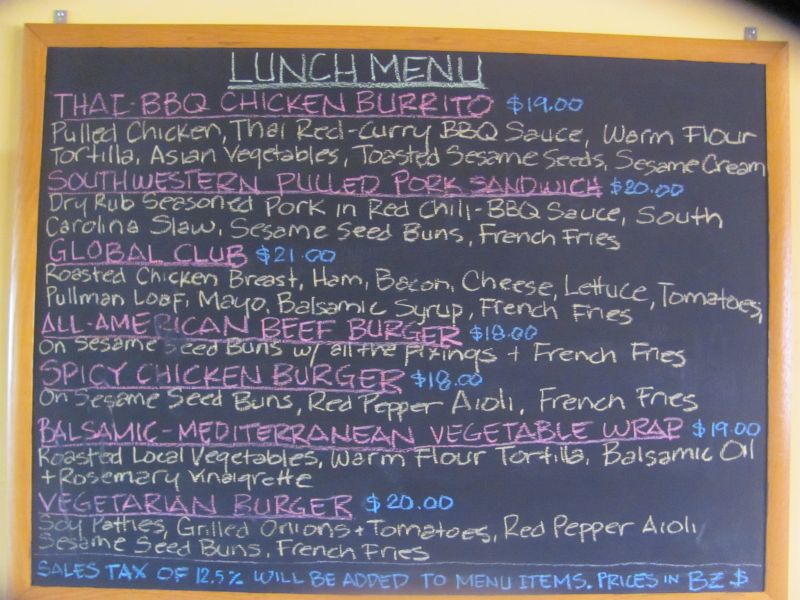 LUNCH MENU
THAI-BBQ CHICKEN BURRITO $19.00
Pulled Chicken, Thai Red-Curry BBQ Sauce, Warm Flour
Tortilla, Asian Vegetables, Toasted Sesame Seeds, Sesame Cream
SOUTHWESTERN PULLED PORK SANDWICH $20.00
Dry Rub Seasoned Pork in Red Chili-BBQ Sauce, South
Carolina Slaw, Sesame Seed Buns, French Fries
GLOBAL CLUB $21.00
Roasted Chicken Breast, Ham, Bacon, Cheese, Lettuce, Tomatoes,
Pullman Loaf, Mayo, Balsamic Syrup, French Fries
ALL-AMERICAN BEEF BURGER $18.00
On Sesame Seed Buns w/ all the Fixings + French Fries
SPICY CHICKEN BURGER $18.00
On Sesame Seed Buns, Red Pepper Aioli, French Fries
BALSAMIC-MEDITERRANEAN VEGETABLE WRAP $19.00
Roasted Local Vegetables, Warm Flour Tortilla, Balsamic Oil
+ Rosemary Vinaigrette
VEGETARIAN BURGER $20.00
Soy Patties, Grilled Onions + Tomatoes, Red Pepper Aioli
Sesame Seed Buns, French Fries
SALES TAX OF 12.5% WILL BE ADDED TO MENU ITEMS. PRICES IN BZ $